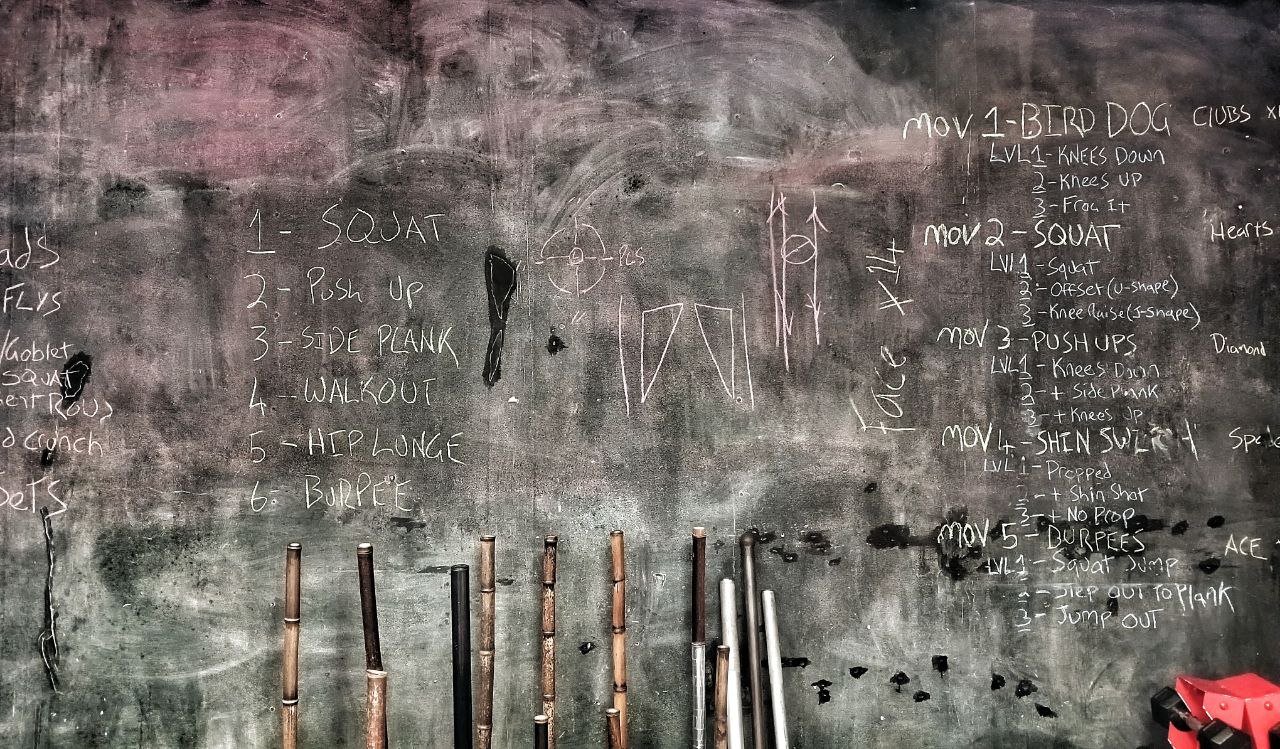 ads
FLYS
/Goblet
SQUAT
ent Rows
d crunch
SeTS
1- SQUAT
2- Push Up
3- SIDE PLANK
4 - WALKOUT
5 - HIP LUNGE
6- BURPEE
Face x14
MOV 1-BIRD DOG CLUBS
LVL 1-KNEES DOWN
2-Knees UP
3-Frog It
MOV 2-SQUAT Hearts
LVL 1-Squat
2-OffSet (U-shape)
3-Knee Raise (J-Shape)
MOV 3-PUSH UPS Diamond
LVL 1-Knees Down
2-+ Side Plank
3-+ Knees Up
MOV 4-SHIN Spade
LVL 1-Propped
2-+ Shin Shot
3-+ No Prop
MOV 5-BURPEES ACE
LVL 1-Squat Jump
2-Step OUT To Plank
3-Jump OUT